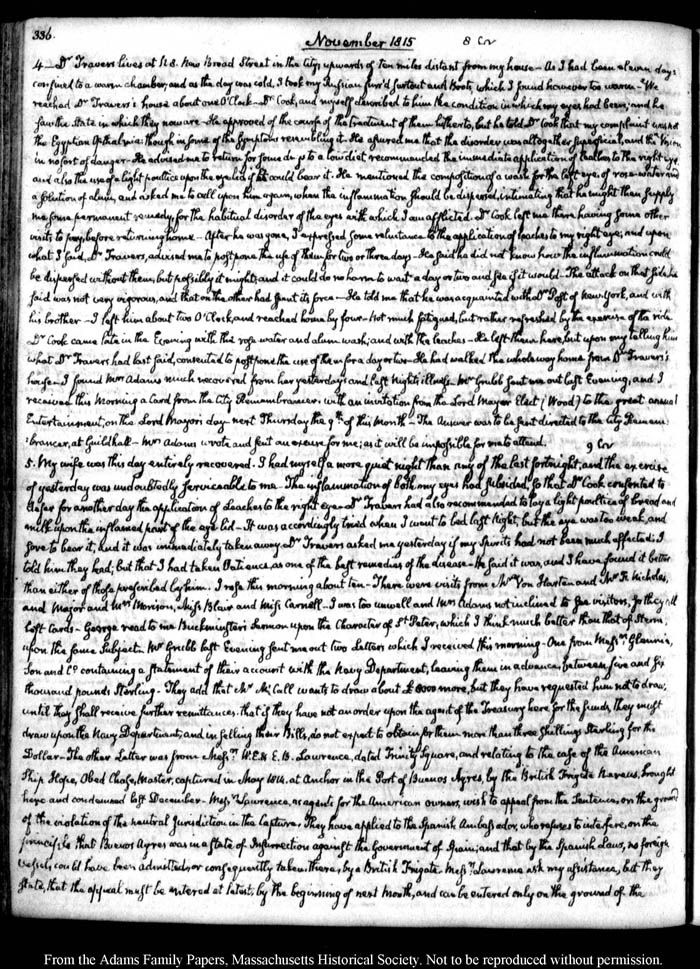 336.
November 1815
8 Cv
4— Dr Travers lives at N. 8. New Broad Street in the City, upwards of ten miles distant from my house— As I had been eleven days
confined to a warm chamber, and as the day was cold, I took my Russian furr'd surtout and Boots, which I found however too warm— We
reached Dr Travers's house about one O'Clock— Dr Cook, and myself described to him the condition in which my eyes had been; and he
saw the State in which they now are— He approved of the course of the treatment of them hitherto, but he told Dr Cook that my complaint was not
the Egyptian Opthalmia: though in some of the symptoms resembling it. He assured me that the disorder was altogether superficial, and the Vision
in no sort of danger— He advised me to return for some days to a low diet recommended the immediate application of leaches to the right eye,
and also the use of a light poultice upon the eyelid if it could bear it. He mentioned the composition of a wash for the left eye, of rose-water and
a solution of alum, and asked me to call upon him again, when the inflammation should be dispersed, intimating that he might then supply
me some permanent remedy, for the habitual disorder of the eyes with which I am afflicted. Dr Cook left me there having some other
visits to pay, before returning home— After he was gone, I expressed some reluctance to the application of leaches to my right eye; and upon
what I said, Dr Travers, advised me to postpone the use of them for two or three days— He said he did not know how the inflammation could
be dispersed without them, but possibly it might; and it could do no harm to wait a day or two and see if it would. The attack on that side he
said was not very vigorous, and that on the other had spent its force— He told me that he was acquainted with Dr Post of New York, and with
his brother— I left him about two O'Clock, and reached home by four— Not much fatigued, but rather refreshed by the exercise of the ride
Dr Cook came late in the Evening with the rose water and alum wash; and with the leaches— He left them here, but upon my telling him
what Dr Travers had last said, consented to postpone the use of them for a day or two— He had walked the whole way home from Dr Travers's
house— I found Mrs Adams much recovered from her yesterday's and last night's illness. Mr Grubb sent me out last Evening, and I
received this Morning a Card from the City Remembrancer; with an invitation from the Lord Mayor Elect (Wood) to the great annual
Entertainment, on the Lord Mayor's day next Thursday the 9th of this Month— The Answer was to be sent directed to the City Remem
:brancer, at Guildhall— Mrs Adams wrote and sent an excuse for me; as it will be impossible for me to attend.
9 Cv
5. My wife was this day entirely recovered. I had myself a more quiet night than any of the last fortnight, and the exercise
of yesterday was undoubtedly serviceable to me— The inflammation of both my eyes had subsided, so that Dr Cook consented to
defer for another day the application of Leaches to the right eye— Dr Travers had also recommended to lay a light poultice of bread and
milk upon the inflamed part of the eye lid— It was accordingly tried when I went to bed last Night, but the eye was too weak, and
sore to bear it, and it was immediately taken away. Dr Travers asked me yesterday if my Spirits had not been much affected; I
told him they had; but that I had taken Patience, as one of the best remedies of the disease— He said it was, and I have found it better
than either of those prescribed by him. I rose this morning about ten— There were visits from Mr Von Harten and Mr R. Nicholas,
and Major and Mrs Morison, Miss Blair and Miss Carnell— I was too unwell and Mrs Adams not inclined to see visitors, so they all
left Cards— George read to me Buckminster's Sermon upon the Character of St Peter, which I think much better than that of Stern,
upon the same Subject. Mr Grubb last Evening sent me out two Letters which I received this morning— One from Messrs Glennie,
Son and Co containing a statement of their account with the Navy Department, leaving them in advance between five and six
thousand pounds Sterling— They add that Mr McCall wants to draw about more, but they have requested him not to draw;
until they shall receive further remittances. that if they have not an order upon the agent of the Treasury here for the funds, they must
draw upon the Navy Department, and in selling their Bills, do not expect to obtain for them more than three shillings Sterling for the
Dollar— The other Letter was from Messrs W. E. & E. B. Lawrence, dated Trinity Square, and relating to the case of the American
Ship Hope, Obed Chase, Master, captured in May 1814. at Anchor in the Port of Buenos Ayres, by the British Frigate Nereus, brought
here and condemned last December— Messrs Lawrence, as agents for the American owners, wish to appeal from the Sentence, on the ground
of the violation of the neutral Jurisdiction in the Capture. They have applied to the Spanish Ambassador, who refuses to interfere, on the
principle that Buenos Ayres was in a State of Insurrection against the Government of Spain; and that by the Spanish Laws, no foreign
vessels could have been admitted, or consequently taken there, by a British Frigate. Messrs Lawrence ask my assistance, but they
State, that the appeal must be entered at latest, by the beginning of next Month, and can be entered only on the ground of the
From the Adams Family Papers, Massachusetts Historical Society. Not to be reproduced without permission.